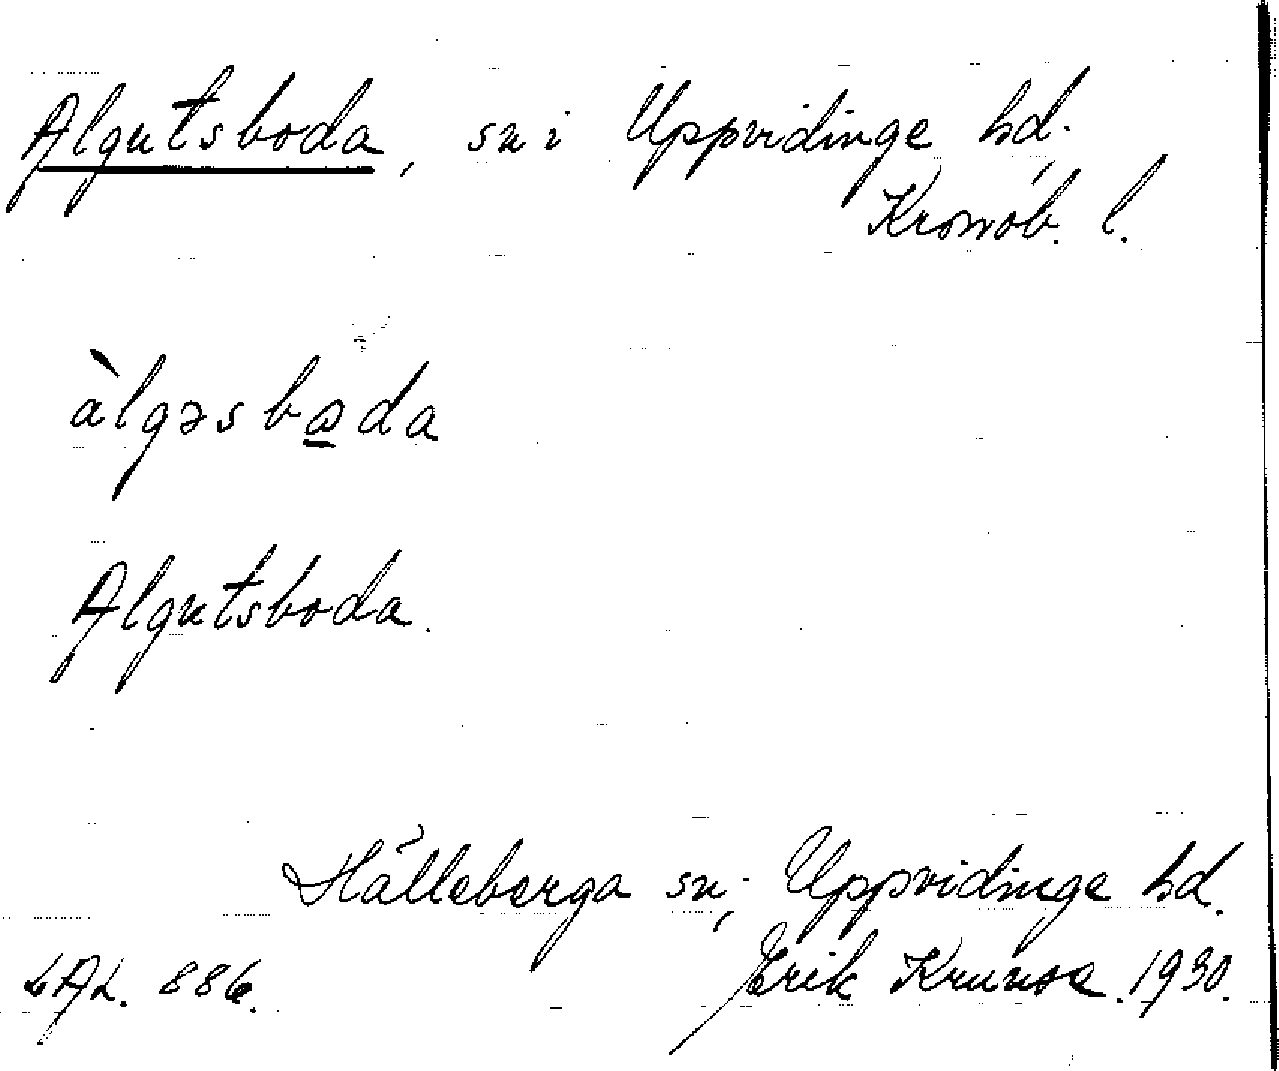 Algutsboda, sn i Uppvidinge hd,
Kronob. l.
àlgəsbo̲da
Algutsboda.
Hälleberga sn, Uppvidinge hd.
LAL. 886. Erik Krunse. 1930.